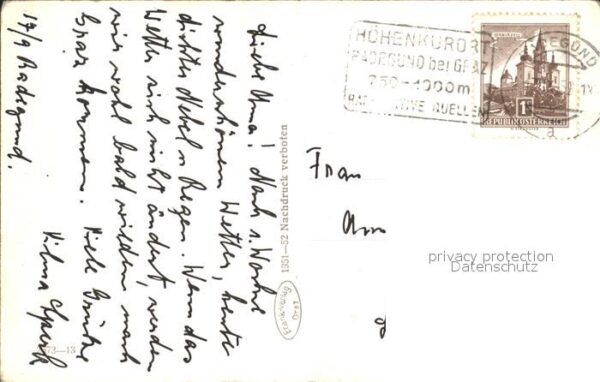 17/9 Radegund.
Liebe Anna! Nach 1. Woche
wunderschönem Wetter, heute
dichter Nebel u Regen. Wenn das
Wetter sich nicht ändert, werden
wir wohl bald wieder nach
Graz kommen. Viele Grüße
Vilma
73-13
1351-52 Nachdruck verboten
HÖHENKURORT
RADEGUND bei GRAZ
750-1000 m
QUELLEN
a
1S
REPUBLIK ÖSTERREICH
Frau
privacy protection
Datenschutz